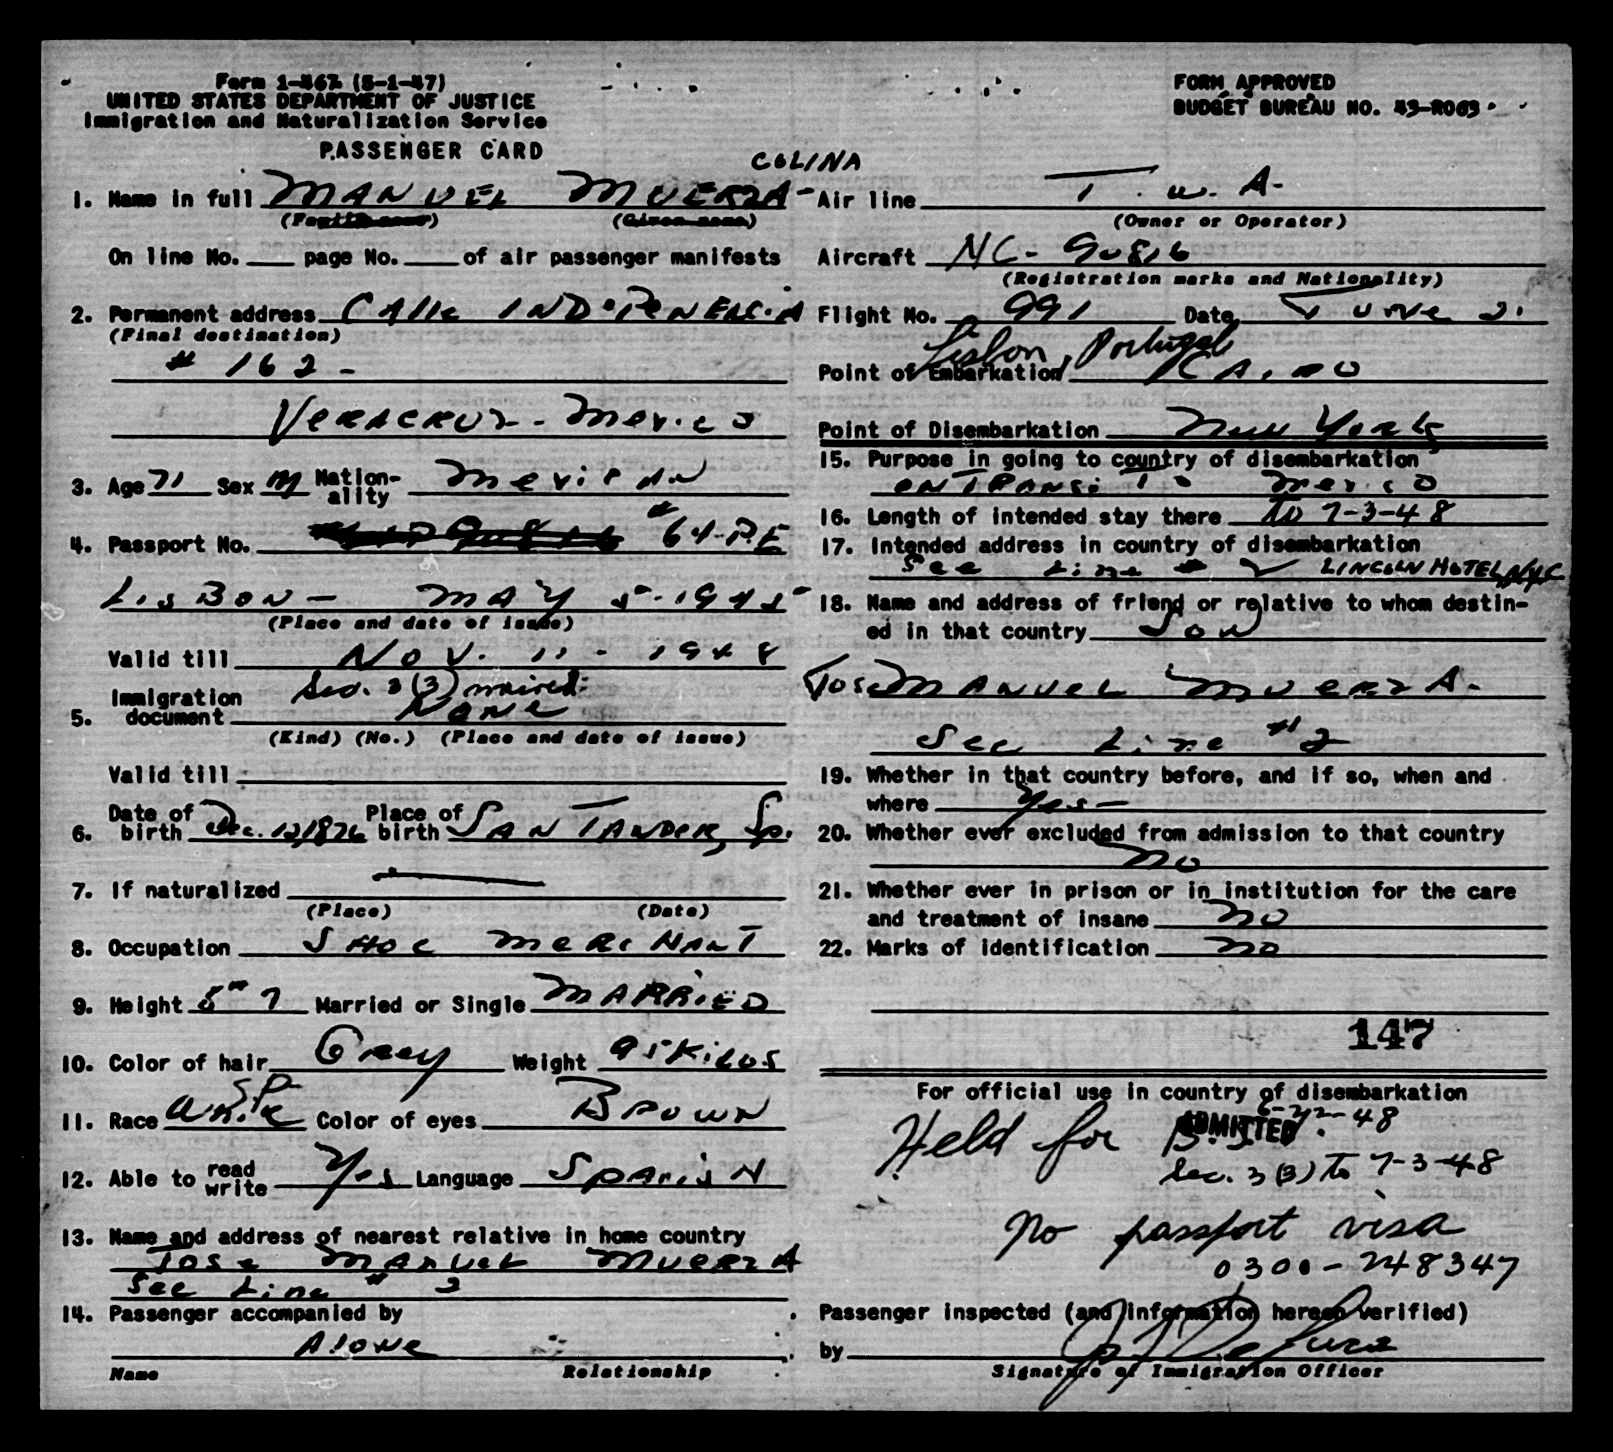 Form I-467 (5-1-47)
UNITED STATES DEPARTMENT OF JUSTICE
Immigration and Naturalization Service
PASSENGER CARD
FORM APPROVED
BUDGET BUREAU NO. 43-R063
COLINA
1. Name in full MANUEL MUERZA-
(Family name) (Given name)
On line No. ___ page No. ___ of air passenger manifests
2. Permanent address CAllE INDEPENENCIA
(Final destination)
# 162-
VERACRUZ - MEXICO
3. Age 71 Sex M Nationality MEXICAN
4. Passport No. # 64-P.E
LISBON - MAY 5-1945
(Place and date of issue)
Valid till NOV. 11 - 1948
Sec. 3(3) waived.
5. Immigration document NONE
(Kind) (No.) (Place and date of issue)
Valid till
6. Date of birth Dec. 12, 1876 Place of birth SANTANDER, Sp.
7. If naturalized —
(Place) (Date)
8. Occupation SHOE MERCHANT
9. Height 5" 7 Married or Single MARRIED
10. Color of hair Grey Weight 95 KILOS
Sp
11. Race White Color of eyes BROWN
12. Able to read write Yes Language SPANISH
13. Name and address of nearest relative in home country
JOSE MANUEL MUERZA
See Line # 2
14. Passenger accompanied by
Alone
Name Relationship
Air line T.W.A-
(Owner or Operator)
Aircraft NC-90816
(Registration marks and Nationality)
Flight No. 991 Date June 21
Lisbon, Portugal
Point of Embarkation CAIRO
Point of Disembarkation New York
15. Purpose in going to country of disembarkation
ON TRANSIT TO MEXICO
16. Length of intended stay there To 7-3-48
17. Intended address in country of disembarkation
See Line # 2 LINCOLN HOTEL, NYC
18. Name and address of friend or relative to whom destin-
ed in that country Son
Jose MANUEL MUERZA-
See Line #2
19. Whether in that country before, and if so, when and
where Yes-
20. Whether ever excluded from admission to that country
No
21. Whether ever in prison or in institution for the care
and treatment of insane No
22. Marks of identification No
147
For official use in country of disembarkation
6-22-48
Held for B.S.I. ADMITTED
Sec. 3(3) To 7-3-48
No passport visa
0300-248347
Passenger inspected (and information hereon verified)
by
Signature of Immigration Officer